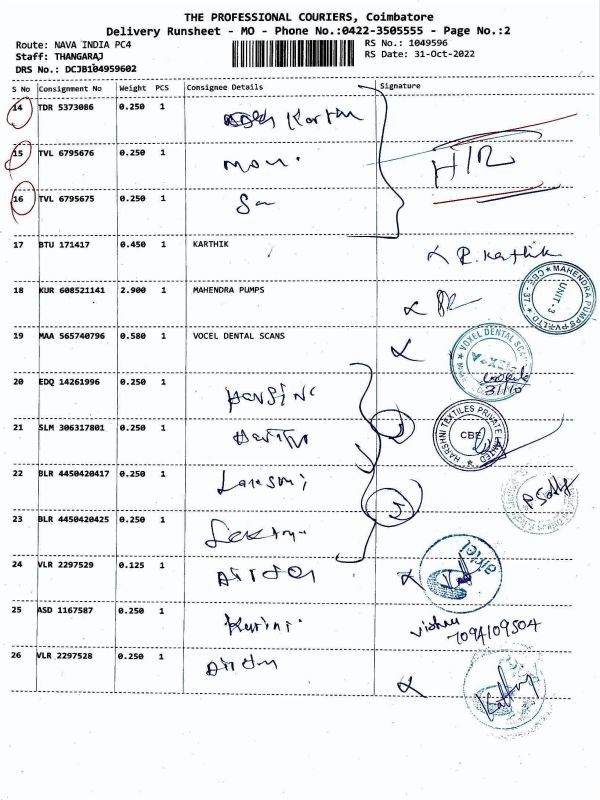 THE PROFESSIONAL COURIERS, Coimbatore
Delivery Runsheet - MO - Phone No.:0422-3505555 - Page No.:2
Route: NAVA INDIA PC4
RS No.: 1049596
Staff: THANGARAJ
RS Date: 31-Oct-2022
DRS No.: DCJB104959602
S No Consignment No Weight PCS Consignee Details Signature
14 TDR 5373086 0.250 1 Karthi
15 TVL 6795676 0.250 1 Mani
H/R
16 TVL 6795675 0.250 1
17 BTU 171417 0.450 1 KARTHIK
R. Karthik
18 KUR 608521141 2.900 1 MAHENDRA PUMPS
MAHENDRA PUMPS PVT LTD CBE-37. UNIT-3
19 MAA 565740796 0.580 1 VOCEL DENTAL SCANS
VOXEL DENTAL SCANS
31/10
20 EDQ 14261996 0.250 1
21 SLM 306317801 0.250 1
HARSHNI TEXTILES PRIVATE LIMITED CBE
22 BLR 4450420417 0.250 1 Laksmi
23 BLR 4450420425 0.250 1
24 VLR 2297529 0.125 1 Airtel
airtel
25 ASD 1167587 0.250 1
Vishnu
7094109504
26 VLR 2297528 0.250 1